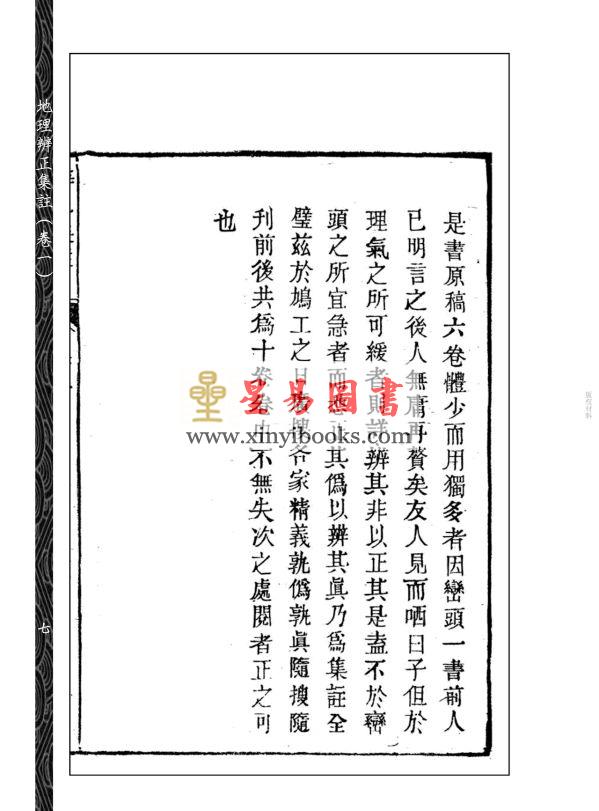 是書原稿六卷體少而用獨多者因巒頭一書前人
已明言之後人無庸再贅矣友人見而哂曰子但於
理氣之所可緩者則詳辨其非以正其是盍不於巒
頭之所宜急者而悉正其僞以辨其眞乃爲集註全
璧茲於鳩工之日廣搜各家精義孰僞孰眞隨搜隨
刋前後共爲十卷卷內不無失次之處閱者正之可
也
地理辨正集註(卷一)
七
星易圖書
www.xinyibooks.com
版權材料